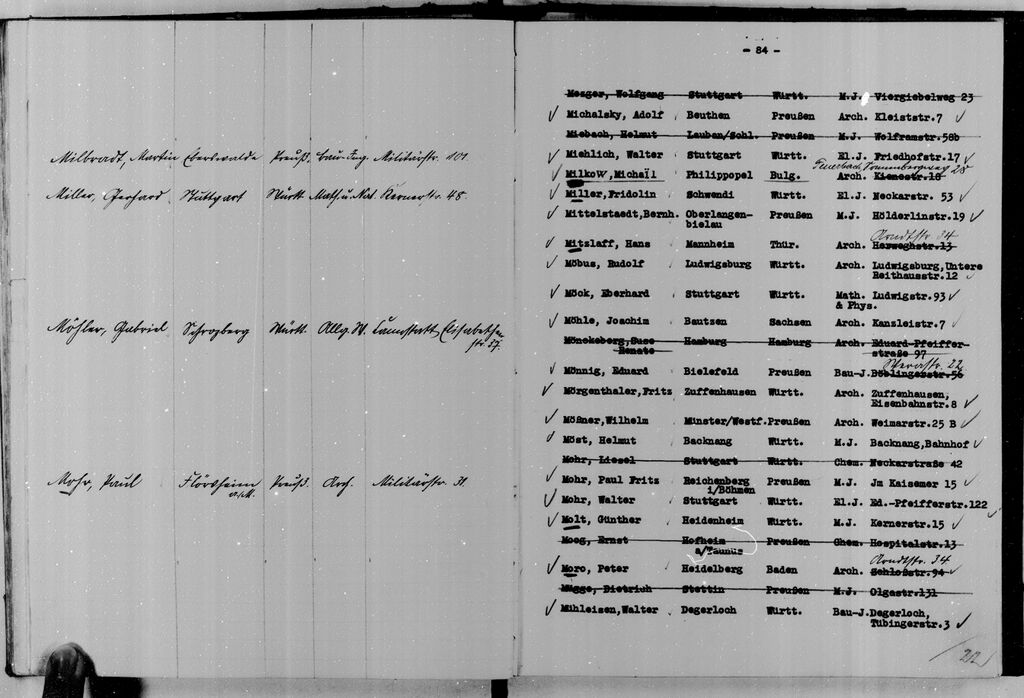 Milbradt, Martin Eberswalde Preuß. Bau-Ing. Militärstr. 101
Miller, Gerhard Stuttgart Württ. Math. u. Nat. Kernerstr. 48.
Möhler, Gabriel Schrozberg Württ. Allg. W. Cannstatt, Elisabethen
str. 37.
Mohr, Paul Flörsheim Preuß. Arch. Militärstr. 31.
a/M.
- 84 -
Mezger, Wolfgang Stuttgart Württ. M.J. Viergiebelweg 23
√ Michalsky, Adolf Beuthen Preußen Arch. Kleiststr.7 √
Miebach, Helmut Lauban/Schl. Preußen M.J. Wolframstr.58b
√ Miehlich, Walter Stuttgart Württ. El.J. Friedhofstr.17 √
Feuerbach, 28
√ Milkow, Michaïl Philippopel Bulg. Arch. Kienestr.18
√ Miller, Fridolin Schwendi Württ. El.J. Neckarstr. 53 √
√ Mittelstaedt, Bernh. Oberlangen- Preußen M.J. Hölderlinstr.19 √
bielau
Arndtstr. 34
√ Mitzlaff, Hans Mannheim Thür. Arch. Herweghstr.13
√ Möbus, Rudolf Ludwigsburg Württ. Arch. Ludwigsburg, Untere
Reithausstr.12 √
√ Möck, Eberhard Stuttgart Württ. Math. Ludwigstr.93 √
& Phys.
√ Möhle, Joachim Bautzen Sachsen Arch. Kanzleistr.7 √
Mönckeberg, Suse Hamburg Hamburg Arch. Eduard-Pfeiffer-
Renate straße 97
Werastr. 22
√ Mönnig, Eduard Bielefeld Preußen Bau-J. Böblingerstr.56
√ Mörgenthaler, Fritz Zuffenhausen Württ. Arch. Zuffenhausen,
Eisenbahnstr.8 √
√ Mößner, Wilhelm Münster/Westf. Preußen Arch. Weimarstr.25 B √
√ Möst, Helmut Backnang Württ. M.J. Backnang, Bahnhof √
Mohr, Liesel Stuttgart Württ. Chem. Neckarstraße 42
√ Mohr, Paul Fritz Reichenberg Preußen M.J. Jm Kaisemer 15 √
i/Böhmen
√ Mohr, Walter Stuttgart Württ. El.J. Ed.-Pfeifferstr.122 √
√ Molt, Günther Heidenheim Württ. M.J. Kernerstr.15 √
Moog, Ernst Hofheim Preußen Chem. Hospitalstr.13
a/Taunus
Arndtstr. 34
√ Moro, Peter Heidelberg Baden Arch. Schloßstr.94 √
Mügge, Dietrich Stettin Preußen M.J. Olgastr.131
√ Mühleisen, Walter Degerloch Württ. Bau-J. Degerloch,
Tübingerstr.3 √
/22/